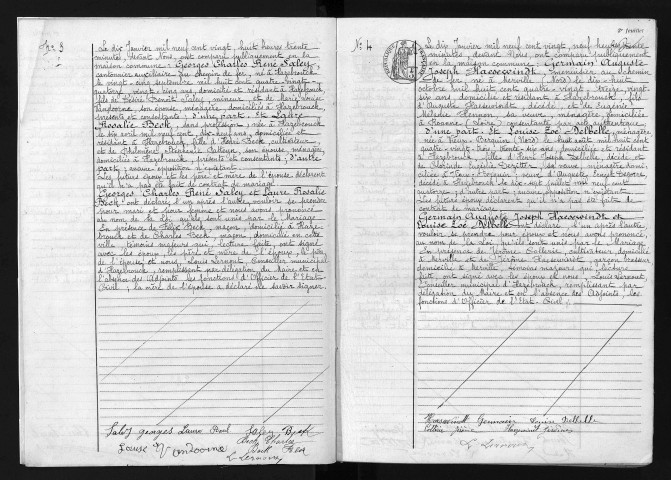 N° 3
Le dix Janvier mil neuf cent vingt, huit heures trente
minutes, devant Nous, ont comparu publiquement en la
maison commune : Georges Charles René Saley,
cantonnier auxiliaire au chemin de fer, né à Hazebrouck
le vingt-cinq septembre mil huit cent quatre-vingt-
quatorze, vingt-cinq ans, domicilié et résidant à Hazebrouck,
fils de Désiré Benoit Saley, mineur, et de Marie
son épouse, ménagère, domiciliés à Hazebrouck,
présents et consentants : d'une part. Et Laure
Rosalie Beck, sans profession, née à Hazebrouck
le dix avril mil neuf cent, dix-neuf ans, domiciliée et
résidant à Hazebrouck, fille de Henri Beck, cultivateur
et de Philomène, son épouse, ménagère,
domiciliés à Hazebrouck, présents et consentants : d'autre
part ; aucune opposition n'existant.
Les futurs époux et les père et mère de l'épouse déclarent
qu'il n'a pas été fait de contrat de mariage.
Georges Charles René Saley et Laure Rosalie
Beck ont déclaré l'un après l'autre vouloir se prendre
pour mari et pour femme et nous avons prononcé
au nom de la Loi qu'ils sont unis par le Mariage.
En présence de Félix Beck, maçon, domicilié à Haze-
brouck et de Charles Beck, maçon, domicilié en cette
ville, témoins majeurs qui, lecture faite, ont signé
avec les époux, les père et mère de l'époux, le père
de l'épouse et nous, Louis Lernout, Conseiller municipal
d'Hazebrouck, remplissant par délégation du Maire et en
l'absence des Adjoints, les fonctions d'Officier de l'Etat-
Civil, la mère de l'épouse a déclaré ne savoir signer.
Saley georges Laure Beck Saley
Beck Charles
Louise Beck Félix
L. Lernout
2e feuillet
N° 4
Le dix Janvier mil neuf cent vingt, neuf heures
minutes, devant Nous, ont comparu publiquement
en la maison commune : Germain Auguste
Joseph Haesewindt, menuisier au chemin
de fer, né à Merville (Nord) le dix-huit
octobre mil huit cent quatre-vingt-treize, vingt-
six ans, domicilié et résidant à Hazebrouck, fils
d'Auguste Haesewindt, décédé, et de Eugénie
Mélodie Hennon, sa veuve, ménagère, domiciliée
à Roanne (Loire), consentante par acte authentique.
d'une part. Et Louise Zoé Delbelle, ménagère
née à Vieux-Berquin (Nord) le huit août mil huit cent
quatre-vingt, trente ans, domiciliée et résidant
à Hazebrouck, fille d'Henri Joseph Delbelle, décédé, et
de Clarisse, sa veuve, ménagère, domi-
ciliée à Vieux-Berquin ; veuve d'Auguste
décédé à Hazebrouck le dix-sept juillet mil neuf cent
quatorze ; d'autre part ; aucune opposition n'existant.
Les futurs époux déclarent qu'il n'a pas été fait de
contrat de mariage.
Germain Auguste Joseph Haesewindt et
Louise Zoé Delbelle ont déclaré l'un après l'autre
vouloir se prendre pour époux et nous avons prononcé
au nom de la Loi qu'ils sont unis par le Mariage.
En présence de Jérémie, cultivateur, domicilié
à Merville et de Jérôme Haesewindt, garçon brasseur
domicilié à Merville, témoins majeurs qui, lecture
faite, ont signé avec les époux et nous, Louis Lernout,
Conseiller municipal d'Hazebrouck, remplissant par
délégation du Maire et en l'absence des Adjoints, les
fonctions d'Officier de l'Etat-Civil.
Haesewindt Germain Louise Delbelle
Haesewindt Jérôme
L. Lernout